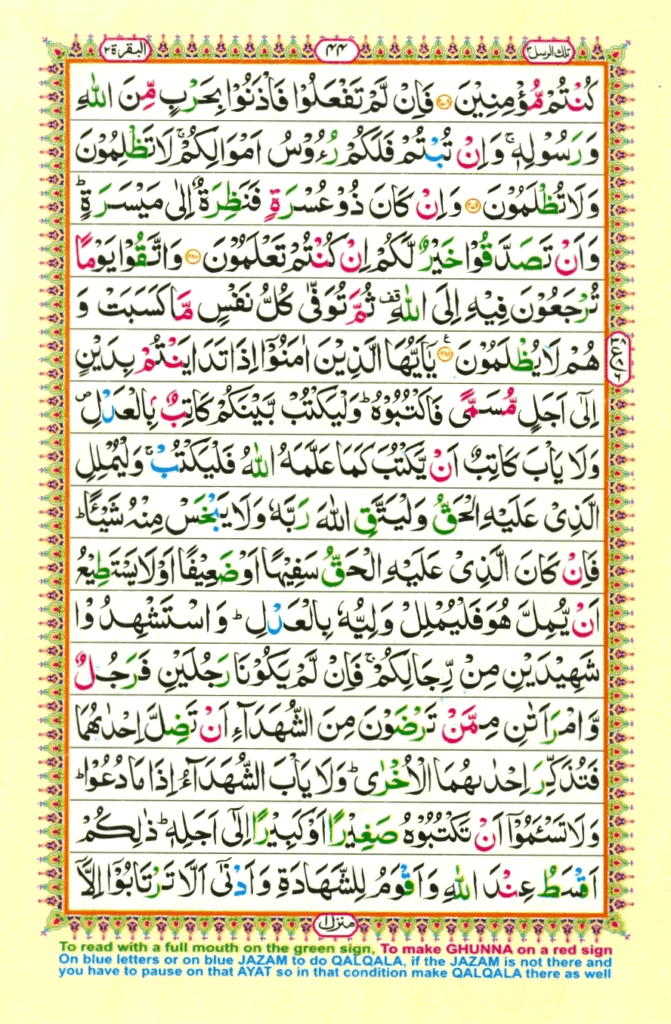 تلك الرسل ٣
٤٤
البقرة ٢
كُنْتُمْ مُّؤْمِنِيْنَ ۝٢٧٨ فَاِنْ لَّمْ تَفْعَلُوْا فَاْذَنُوْا بِحَرْبٍ مِّنَ اللّٰهِ
وَرَسُوْلِهٖ ۚ وَاِنْ تُبْتُمْ فَلَكُمْ رُءُوْسُ اَمْوَالِكُمْ ۚ لَا تَظْلِمُوْنَ
وَلَا تُظْلَمُوْنَ ۝٢٧٩ وَاِنْ كَانَ ذُوْ عُسْرَةٍ فَنَظِرَةٌ اِلٰى مَيْسَرَةٍ ؕ
وَاَنْ تَصَدَّقُوْا خَيْرٌ لَّكُمْ اِنْ كُنْتُمْ تَعْلَمُوْنَ ۝٢٨٠ وَاتَّقُوْا يَوْمًا
تُرْجَعُوْنَ فِيْهِ اِلَى اللّٰهِ ۗقف ثُمَّ تُوَفّٰى كُلُّ نَفْسٍ مَّا كَسَبَتْ وَ
هُمْ لَا يُظْلَمُوْنَ ۝٢٨١ ع يٰٓاَيُّهَا الَّذِيْنَ اٰمَنُوْٓا اِذَا تَدَايَنْتُمْ بِدَيْنٍ
اِلٰٓى اَجَلٍ مُّسَمًّى فَاكْتُبُوْهُ ؕ وَلْيَكْتُبْ بَّيْنَكُمْ كَاتِبٌۢ بِالْعَدْلِ ۪
وَلَا يَاْبَ كَاتِبٌ اَنْ يَّكْتُبَ كَمَا عَلَّمَهُ اللّٰهُ فَلْيَكْتُبْ ۚ وَلْيُمْلِلِ
الَّذِيْ عَلَيْهِ الْحَقُّ وَلْيَتَّقِ اللّٰهَ رَبَّهٗ وَلَا يَبْخَسْ مِنْهُ شَيْـًٔا ؕ
فَاِنْ كَانَ الَّذِيْ عَلَيْهِ الْحَقُّ سَفِيْهًا اَوْ ضَعِيْفًا اَوْ لَا يَسْتَطِيْعُ
اَنْ يُّمِلَّ هُوَ فَلْيُمْلِلْ وَلِيُّهٗ بِالْعَدْلِ ؕ وَاسْتَشْهِدُوْا
شَهِيْدَيْنِ مِنْ رِّجَالِكُمْ ۚ فَاِنْ لَّمْ يَكُوْنَا رَجُلَيْنِ فَرَجُلٌ
وَّامْرَاَتٰنِ مِمَّنْ تَرْضَوْنَ مِنَ الشُّهَدَآءِ اَنْ تَضِلَّ اِحْدٰىهُمَا
فَتُذَكِّرَ اِحْدٰىهُمَا الْاُخْرٰى ؕ وَلَا يَاْبَ الشُّهَدَآءُ اِذَا مَا دُعُوْا ؕ
وَلَا تَسْـَٔمُوْٓا اَنْ تَكْتُبُوْهُ صَغِيْرًا اَوْ كَبِيْرًا اِلٰٓى اَجَلِهٖ ؕ ذٰلِكُمْ
اَقْسَطُ عِنْدَ اللّٰهِ وَاَقْوَمُ لِلشَّهَادَةِ وَاَدْنٰٓى اَلَّا تَرْتَابُوْٓا اِلَّآ
منزل ١
To read with a full mouth on the green sign, To make GHUNNA on a red sign
On blue letters or on blue JAZAM to do QALQALA, if the JAZAM is not there and
you have to pause on that AYAT so in that condition make QALQALA there as well